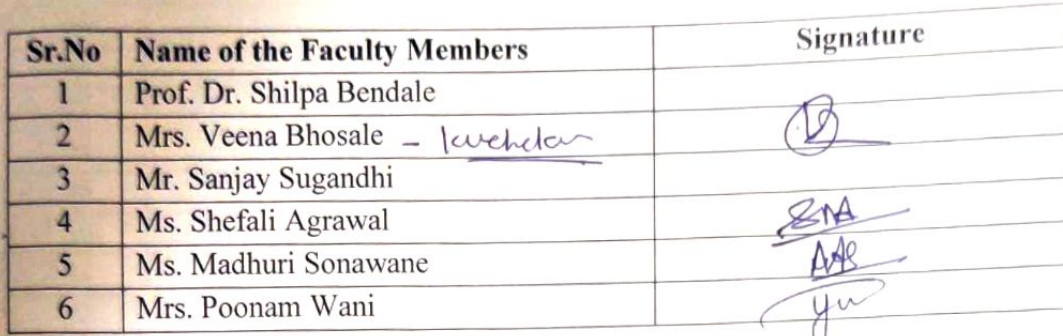 Sr.No Name of the Faculty Members Signature
1 Prof. Dr. Shilpa Bendale
2 Mrs. Veena Bhosale –
3 Mr. Sanjay Sugandhi
4 Ms. Shefali Agrawal
5 Ms. Madhuri Sonawane
6 Mrs. Poonam Wani